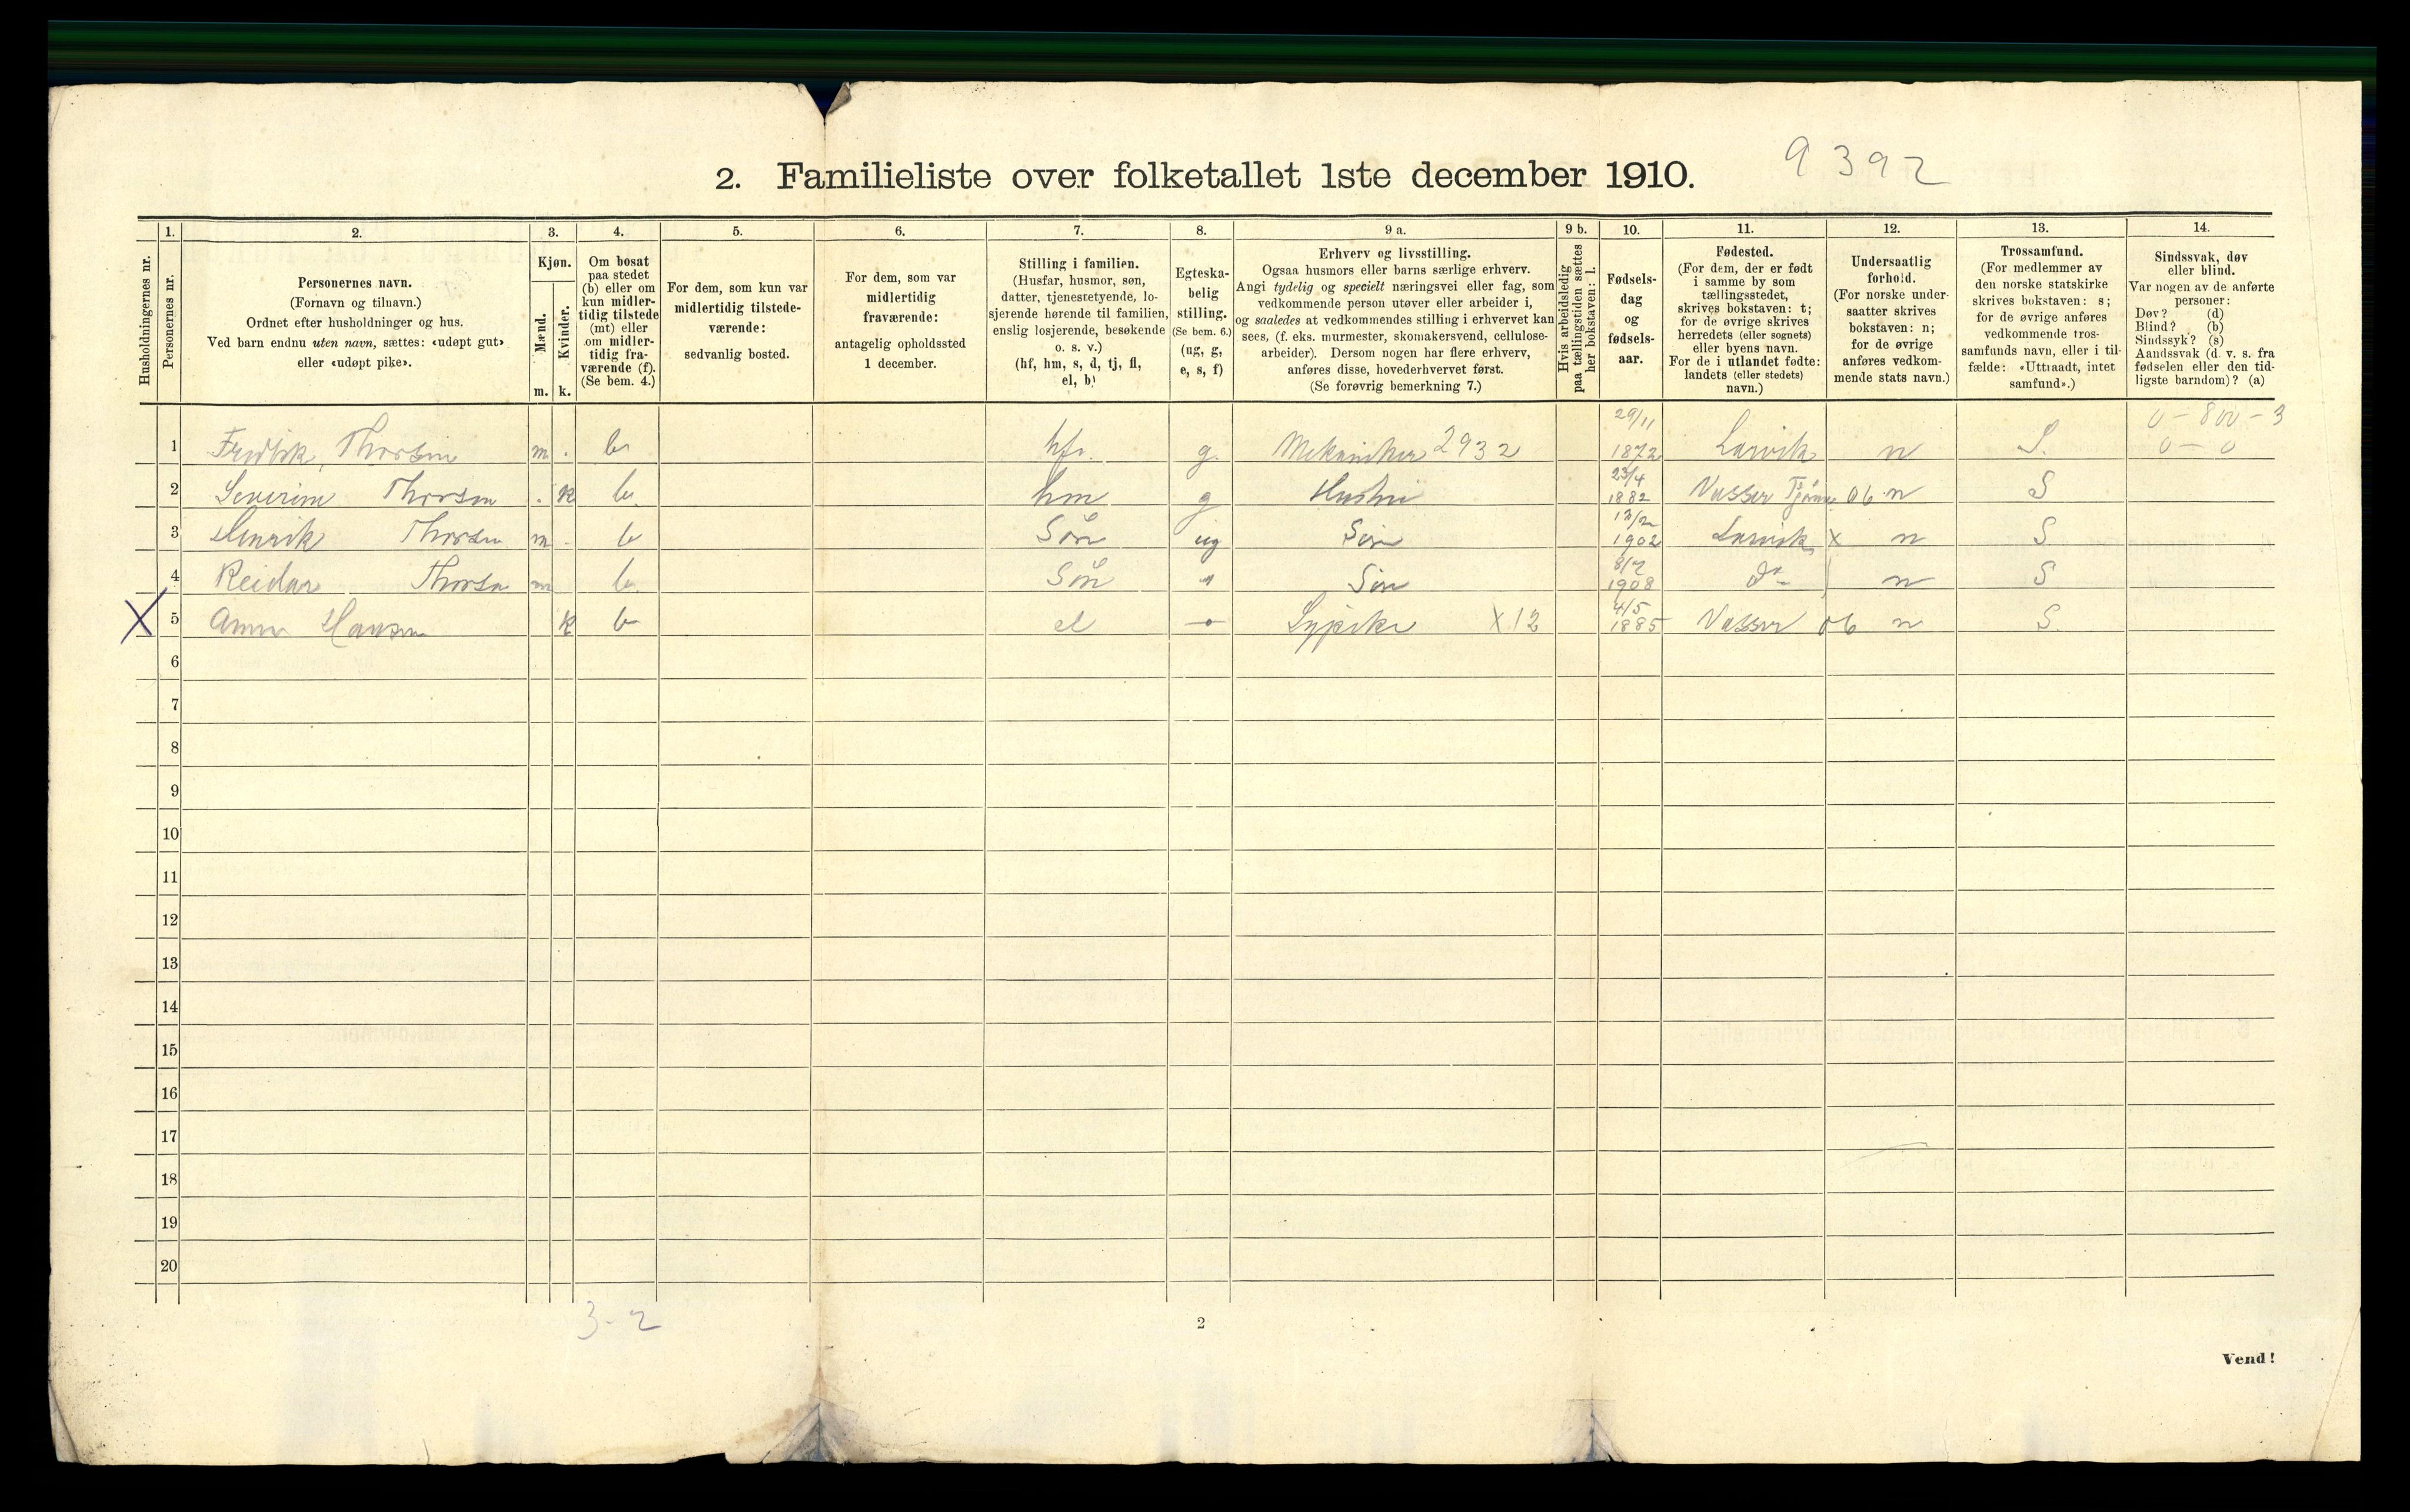 2. Familieliste over folketallet 1ste december 1910.
9392
Husholdningernes nr.
1.
Personernes nr.
2.
Personernes navn.
(Fornavn og tilnavn.)
Ordnet efter husholdninger og hus.
Ved barn endnu uten navn, sættes: «udøpt gut»
eller «udøpt pike».
3.
Kjøn.
Mænd.
m.
Kvinder.
k.
4.
Om bosat
paa stedet
(b) eller om
kun midler-
tidig tilstede
(mt) eller
om midler-
tidig fra-
værende (f).
(Se bem. 4.)
5.
For dem, som kun var
midlertidig tilstede-
værende:
sedvanlig bosted.
6.
For dem, som var
midlertidig
fraværende:
antagelig opholdssted
1 december.
7.
Stilling i familien.
(Husfar, husmor, søn,
datter, tjenestetyende, lo-
sjerende hørende til familien,
enslig losjerende, besøkende
o. s. v.)
(hf, hm, s, d, tj, fl,
el, b)
8.
Egteska-
belig
stilling.
(Se bem. 6.)
(ug, g,
e, s, f)
9 a.
Erhverv og livsstilling.
Ogsaa husmors eller barns særlige erhverv.
Angi tydelig og specielt næringsvei eller fag, som
vedkommende person utøver eller arbeider i,
og saaledes at vedkommendes stilling i erhvervet kan
sees, (f. eks. murmester, skomakersvend, cellulose-
arbeider). Dersom nogen har flere erhverv,
anføres disse, hovederhvervet først.
(Se forøvrig bemerkning 7.)
9 b.
Hvis arbeidsledig
paa tællingstiden sættes
her bokstaven: l.
10.
Fødsels-
dag
og
fødsels-
aar.
11.
Fødested.
(For dem, der er født
i samme by som
tællingsstedet,
skrives bokstaven: t;
for de øvrige skrives
herredets (eller sognets)
eller byens navn.
For de i utlandet fødte:
landets (eller stedets)
navn.)
12.
Undersaatlig
forhold.
(For norske under-
saatter skrives
bokstaven: n;
for de øvrige
anføres vedkom-
mende stats navn.)
13.
Trossamfund.
(For medlemmer av
den norske statskirke
skrives bokstaven: s;
for de øvrige anføres
vedkommende tros-
samfunds navn, eller i til-
fælde: «Uttraadt, intet
samfund».)
14.
Sindssvak, døv
eller blind.
Var nogen av de anførte
personer:
Døv? (d)
Blind? (b)
Sindssyk? (s)
Aandssvak (d. v. s. fra
fødselen eller den tid-
ligste barndom)? (a)
0 - 800 - 3
1 Fredrik Thorsen m . b hf. g. Mekaniker 2932 29/11 1872 Larvik n S. 0 - 0
2 Severine Thorsen . k b. hm g Hustru 23/4 1882 Vasser Tjømø 06 n S
3 Henrik Thorsen m . b Søn ug Søn 1902 Larvik x n S
4 Reidar Thorsen m b. Søn " Søn 8/7 1908 do n S
X 5 Anna Hansen k b el Sypike X12 4/5 1885 Vasser 06 n S.
6
7
8
9
10
11
12
13
14
15
16
17
18
19
20
3-2
2
Vend!